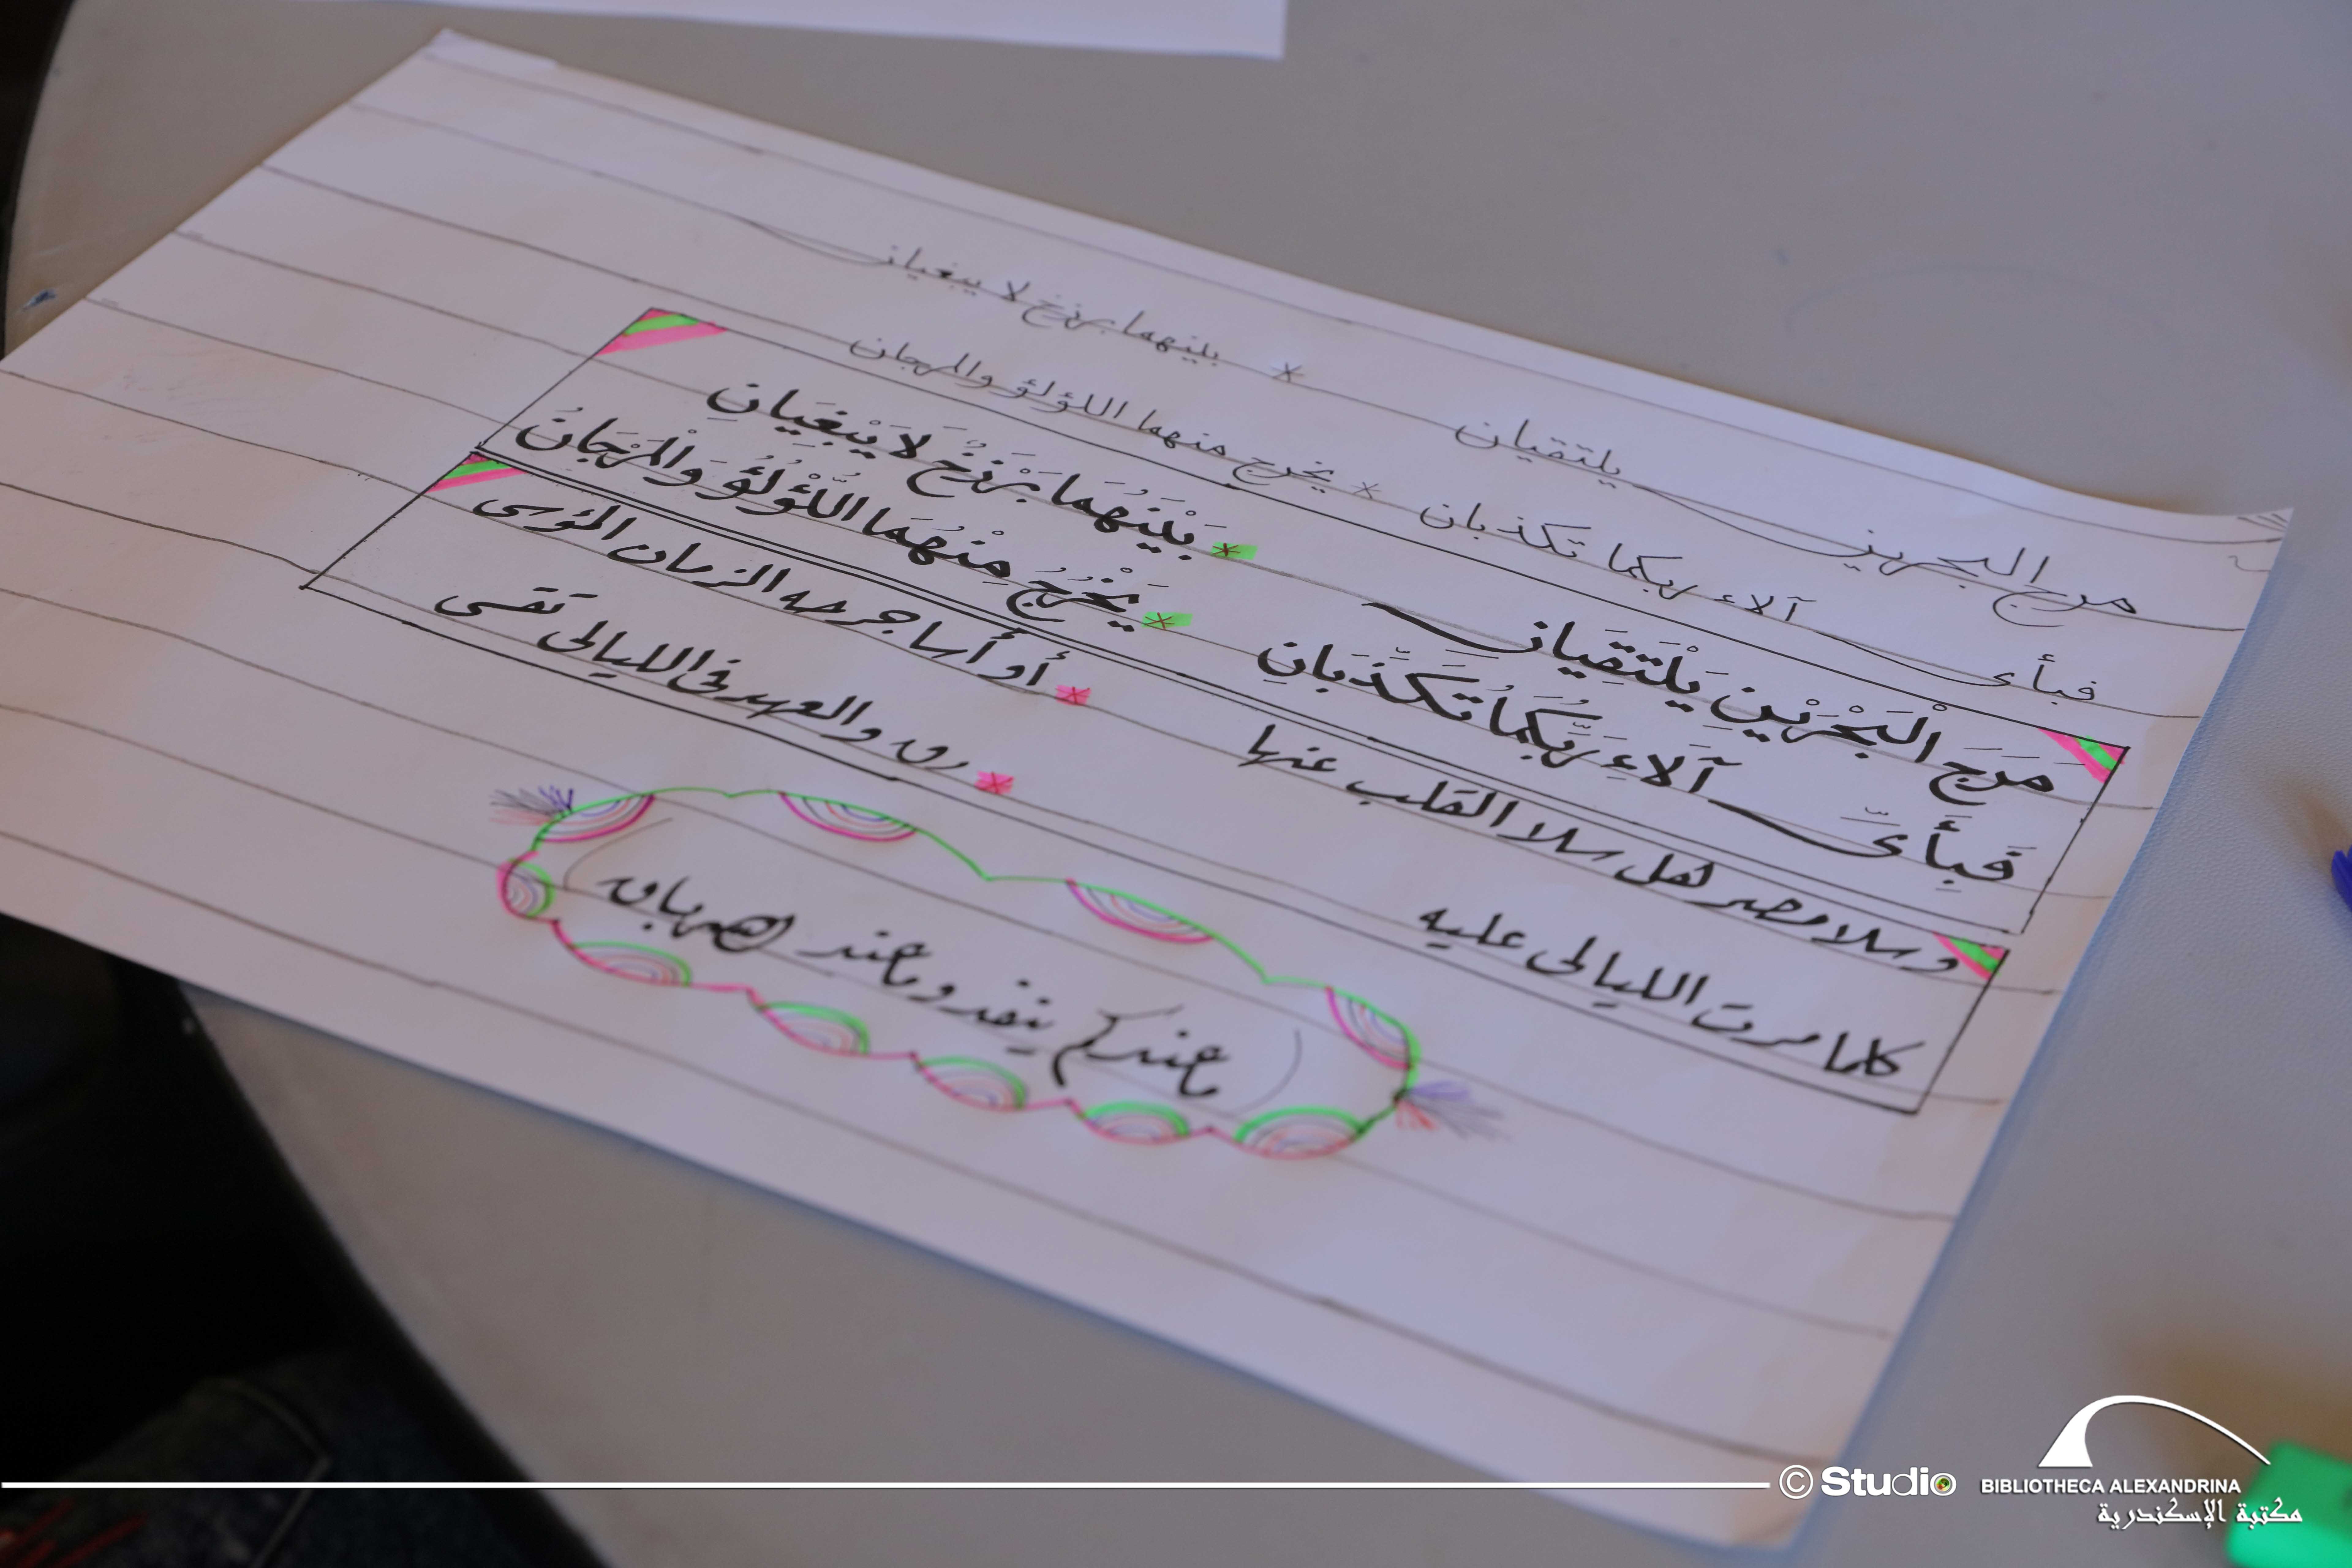 مرج البحرين يلتقيان * بينهما برزخ لا يبغيان
فبأى آلاء ربكما تكذبان * يخرج منهما اللؤلؤ والمرجان
مَرَجَ الْبَحْرَيْنِ يَلْتَقِيَانِ * بَيْنَهُمَا بَرْزَخٌ لَا يَبْغِيَانِ
فَبِأَىِّ آلَاءِ رَبِّكُمَا تُكَذِّبَانِ * يَخْرُجُ مِنْهُمَا اللُّؤْلُؤُ وَالْمَرْجَانُ
وسلا مصر هل سلا القلب عنها * أو أسا جرحه الزمان المؤسى
كلما مرت الليالى عليه * رق والعهد فى الليالى تقسى
ما عندكم ينفد وما عند الله باق
© Studio BIBLIOTHECA ALEXANDRINA
مكتبة الإسكندرية